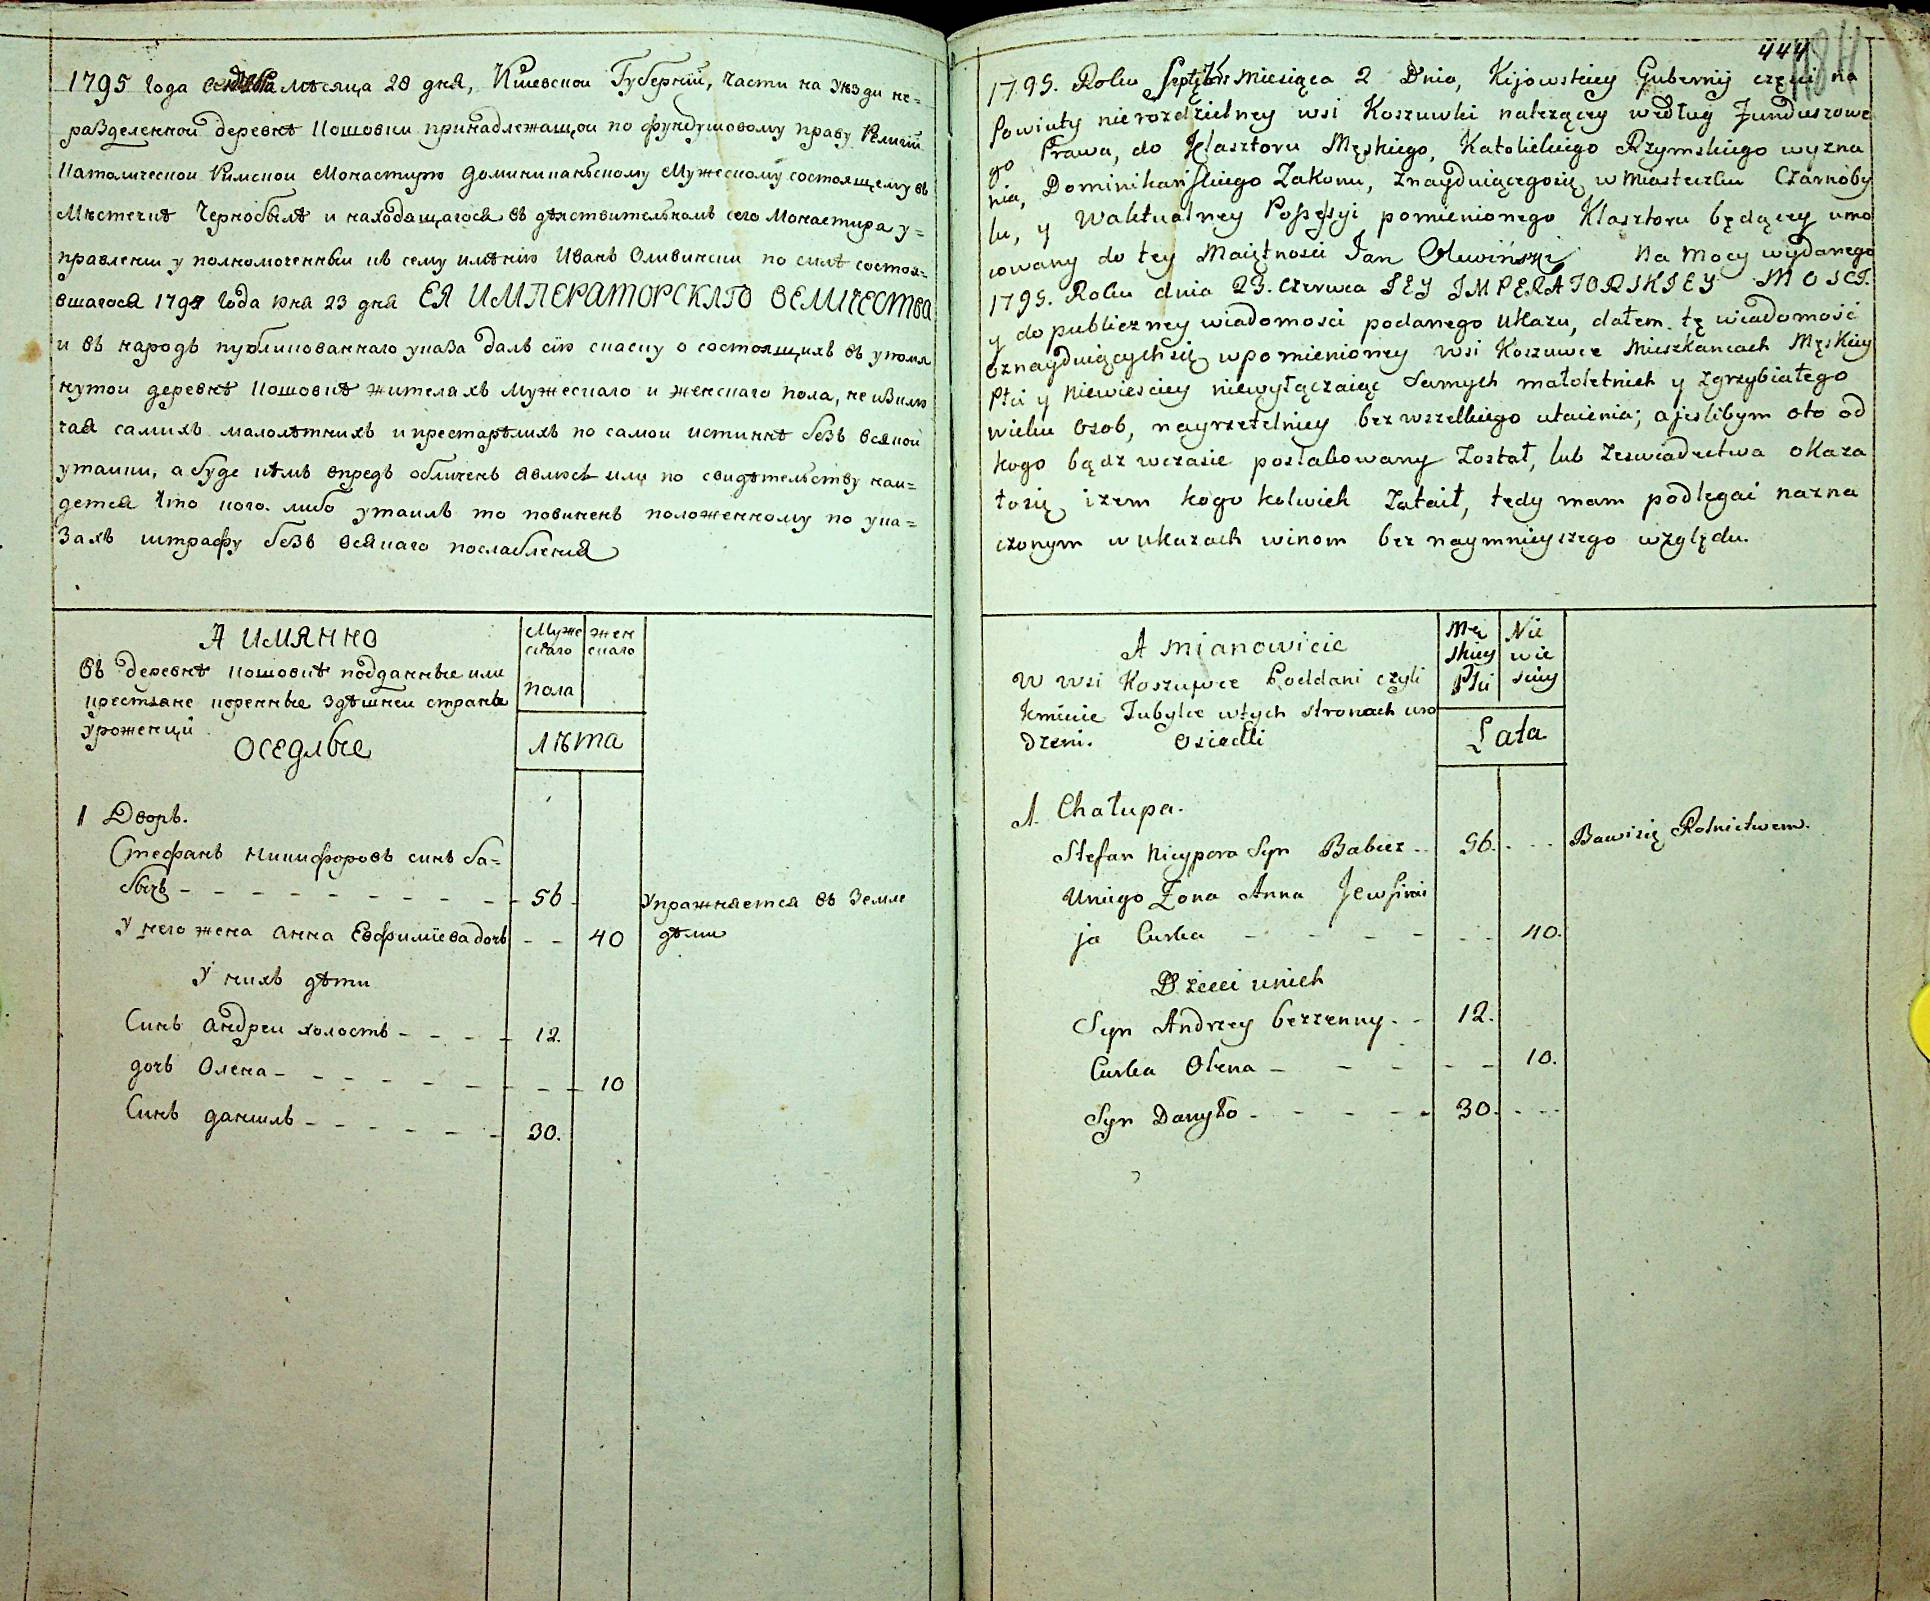 1795 года мѣсяца 28 дня, Киевской Губерніи, части на уѣзди не=
разделенной деревнѣ Кошовки принадлежащой по фундушовому праву Религіи
Католической Римской Монастирю Доминиканьскому Мужескому состоящему въ
Мѣстечкѣ Чернобылѣ и находащагося въ дѣйствительномъ сего Монастира у=
правленіи у полномоченный къ сему имѣнію Иванъ Оливинский по силѣ состоя=
вшагося 1794 года Юна 23 дня ЕЯ ИМПЕРАТОРСКАГО ВЕЛИЧЕСТВА
и въ народъ публикованнаго указа далъ сію скаску о состоящихъ въ упомя
нутой деревнѣ Кошовкѣ жителахъ мужескаго и женскаго пола, не изклю
чая самихъ малолѣтнихъ и престарѣлихъ по самой истиннѣ безъ всякой
утайки, а буде кѣмъ впредъ обличенъ явлюсь или по свидѣтельству най=
детса что кого либо утаилъ то повиненъ положенному по ука=
захъ штрафу безъ всякаго послабленія
А ИМЯННО
Въ деревнѣ кошовкѣ подданные или
крестьяне коренные здѣшней страны
уроженци
Оседлые
Муже
скаго
жен
скаго
пола
лѣта
1 Дворъ.
Стефанъ Никифоровъ синъ ба=
бычъ - - - - - - - - 56
Упражняется въ Земле
дѣлии
У него жена Анна Евфимієва дочъ - - 40
У нихъ дѣти
Синъ Андреи холостъ - - - - 12.
дочъ Олена - - - - - - - - - 10
Синъ данилъ - - - - - - 30.
444
1795. Roku miesiąca 2 Dnia, Kijowskiey Gubernij części na
Powiaty nierozdzielney wsi Koszuwki należącey według Funduszowe
go Prawa, do Klasztoru Męskiego, Katolickiego Rzymskiego wyzna
nia, Dominikańskiego Zakonu, Znayduiącegosię w Miasteczku Czarnoby
lu, y Waktualney Possessyi pomienionego Klasztoru będącey umo
cowany do tey Maiętnosci Jan Oluwiński Na Mocy wydanego
1795. Roku dnia 23. Czerwca JEY IMPERATORSKIEY MOSCI.
y do publiczney wiadomosci podanego Ukazu, dałem tę wiadomość
oznayduiącychsię wpomienioney wsi Koszuwce Mieszkancach Męskiey
Płci y Niewiesciey niewyłączaiąc Samych małoletnich y zgrzybiałego
wieku Osob, nayrzetelniey bez wszelkiego utaienia; a jeslibym oto od
kogo bądz wczasie poszlakowany Został, lub Zeswiadectwa okaza
łosię iżem kogo kolwiek Zataił, tedy mam podlegać nazna
czonym w ukazach winom bez naymnieyszego względu.
A mianowicie
W wsi Koszuwce Poddani czyli
Kmiecie Tubylce wtych stronach uro
dzeni. Osiedli
Mę
skiey
Płci
Nie
wie
sciey
Lata
1. Chałupa.
Stefan Nicypora Syn Babicz - - 56. - - -
Bawisię Rolnictwem.
Uniego Żona Anna Jewfimi
ja Curka - - - - - - 40.
Dzieci unich
Syn Andrzey bezzenny - - 12.
Curka Olena - - - - - - 10.
Syn Danyło - - - - - 30. - - -